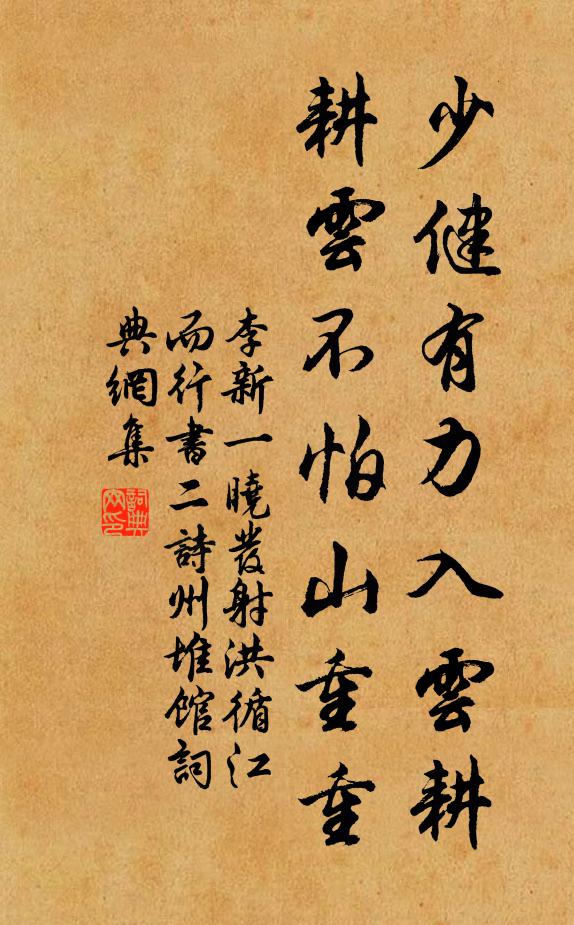 少健有力入雲耕
耕雲不怕山重重
李新一曉發射洪循江
而行書二詩州堆館詞
典網集
詞典網印